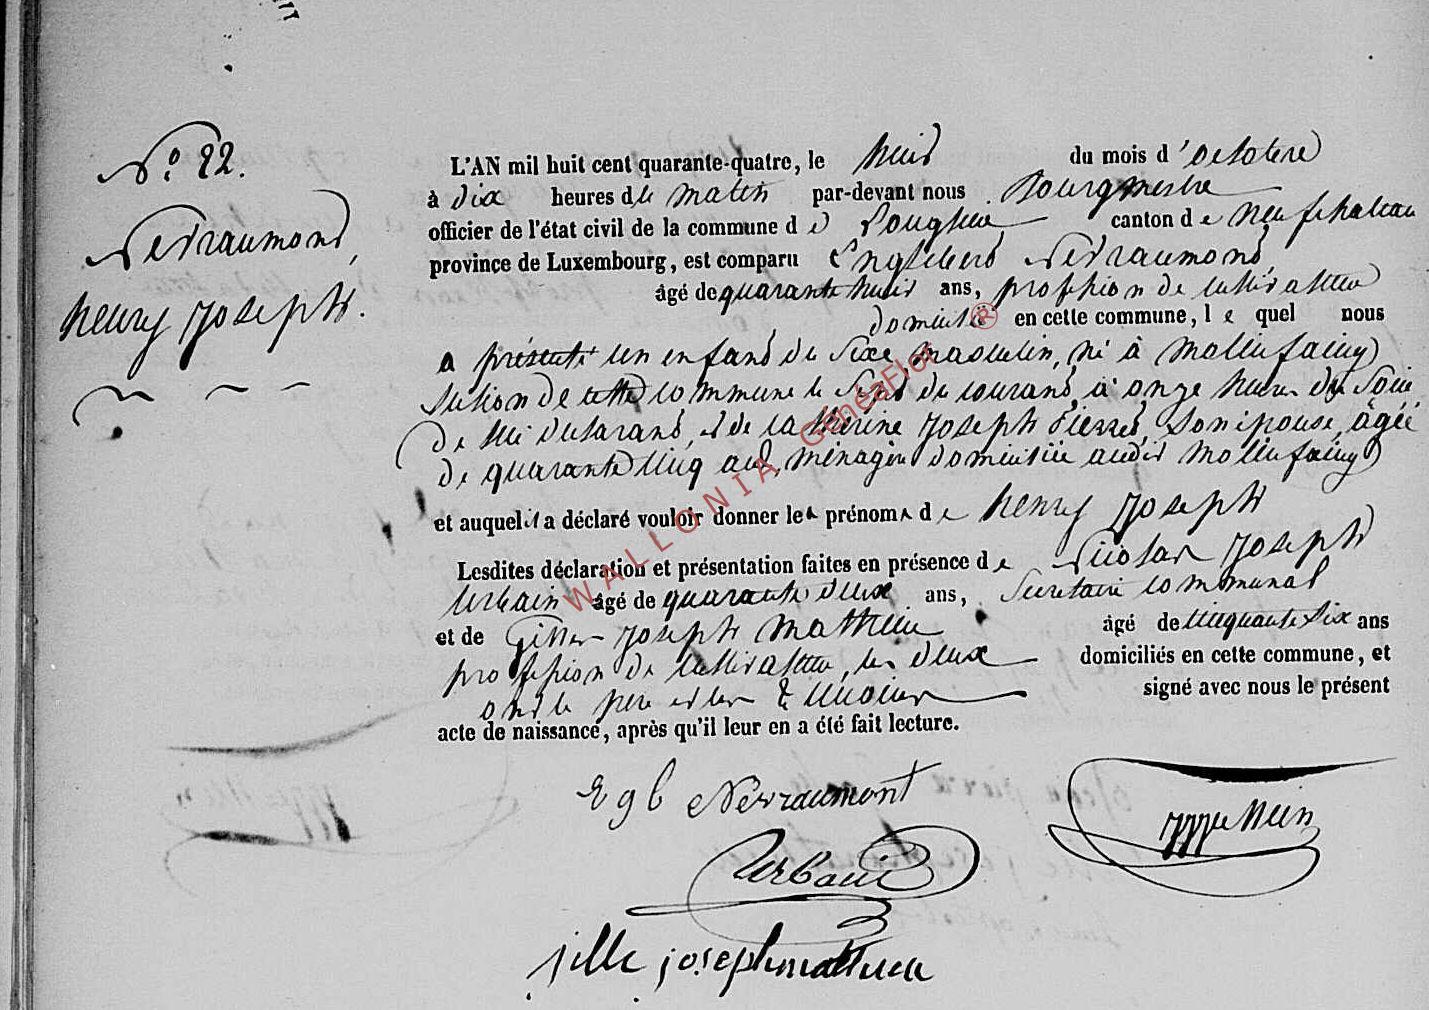 N.° 22.
Nerraumont,
henry Joseph.
L'AN mil huit cent quarante-quatre, le huit du mois d'octobre
à dix heures du matin par-devant nous Bourgmestre
officier de l'état civil de la commune de Louglier canton de neufchateau
province de Luxembourg, est comparu Englebert Nerraumont,
âgé de quarante huit ans, profession de cultivateur
domicilié en cette commune, lequel nous
a présenté un enfant du sexe masculin, né à mollinfaing
section de cette commune le sept du courant, à onze heures du soir,
de lui déclarant, et de catherine Joseph Pierret, son épouse, âgée
de quarante cinq ans, ménagère domiciliée audit mollinfaing
et auquel il a déclaré vouloir donner les prénoms de henry Joseph
Lesdites déclaration et présentation faites en présence de Nicolas Joseph
Urbain âgé de quarante deux ans, Secretaire communal
et de Gille Joseph Mathieu âgé de cinquante six ans
profession de cultivateur, les deux domiciliés en cette commune, et
ont le père et les témoins signé avec nous le présent
acte de naissance, après qu'il leur en a été fait lecture.
Egb Nerraumont
Urbain
jille joseph mathieu
WALLONIA GénéaFlor ®